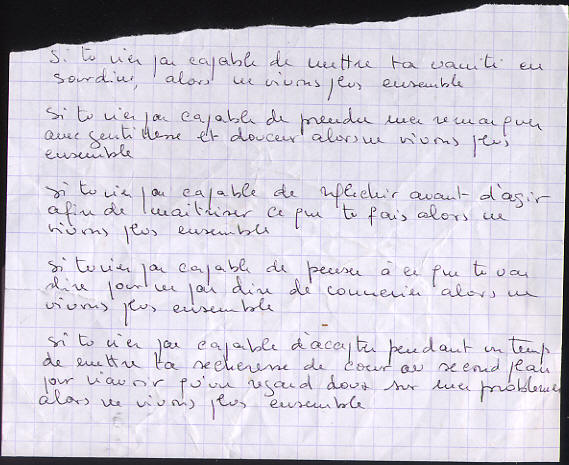 Si tu n'es pas capable de mettre ta vanité en
sourdine, alors ne vivons plus ensemble
si tu n'es pas capable de prendre mes remarques
avec gentillesse et douceur alors ne vivons plus
ensemble
si tu n'es pas capable de réflechir avant d'agir
afin de maitriser ce que tu fais alors ne
vivons plus ensemble
si tu n'es pas capable de penser à ce que tu vas
dire pour ne pas dire de conneries alors ne
vivons plus ensemble
si tu n'es pas capable d'accepter pendant un temps
de mettre ta secheresse de cœur au second plan
pour n'avoir qu'un regard doux sur mes problemes
alors ne vivons plus ensemble